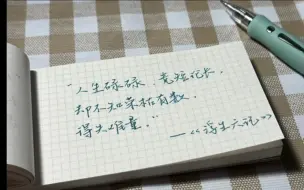 “人生碌碌，竞短论长，
却不知荣枯有数，
得失难量。”
——《浮生六记》